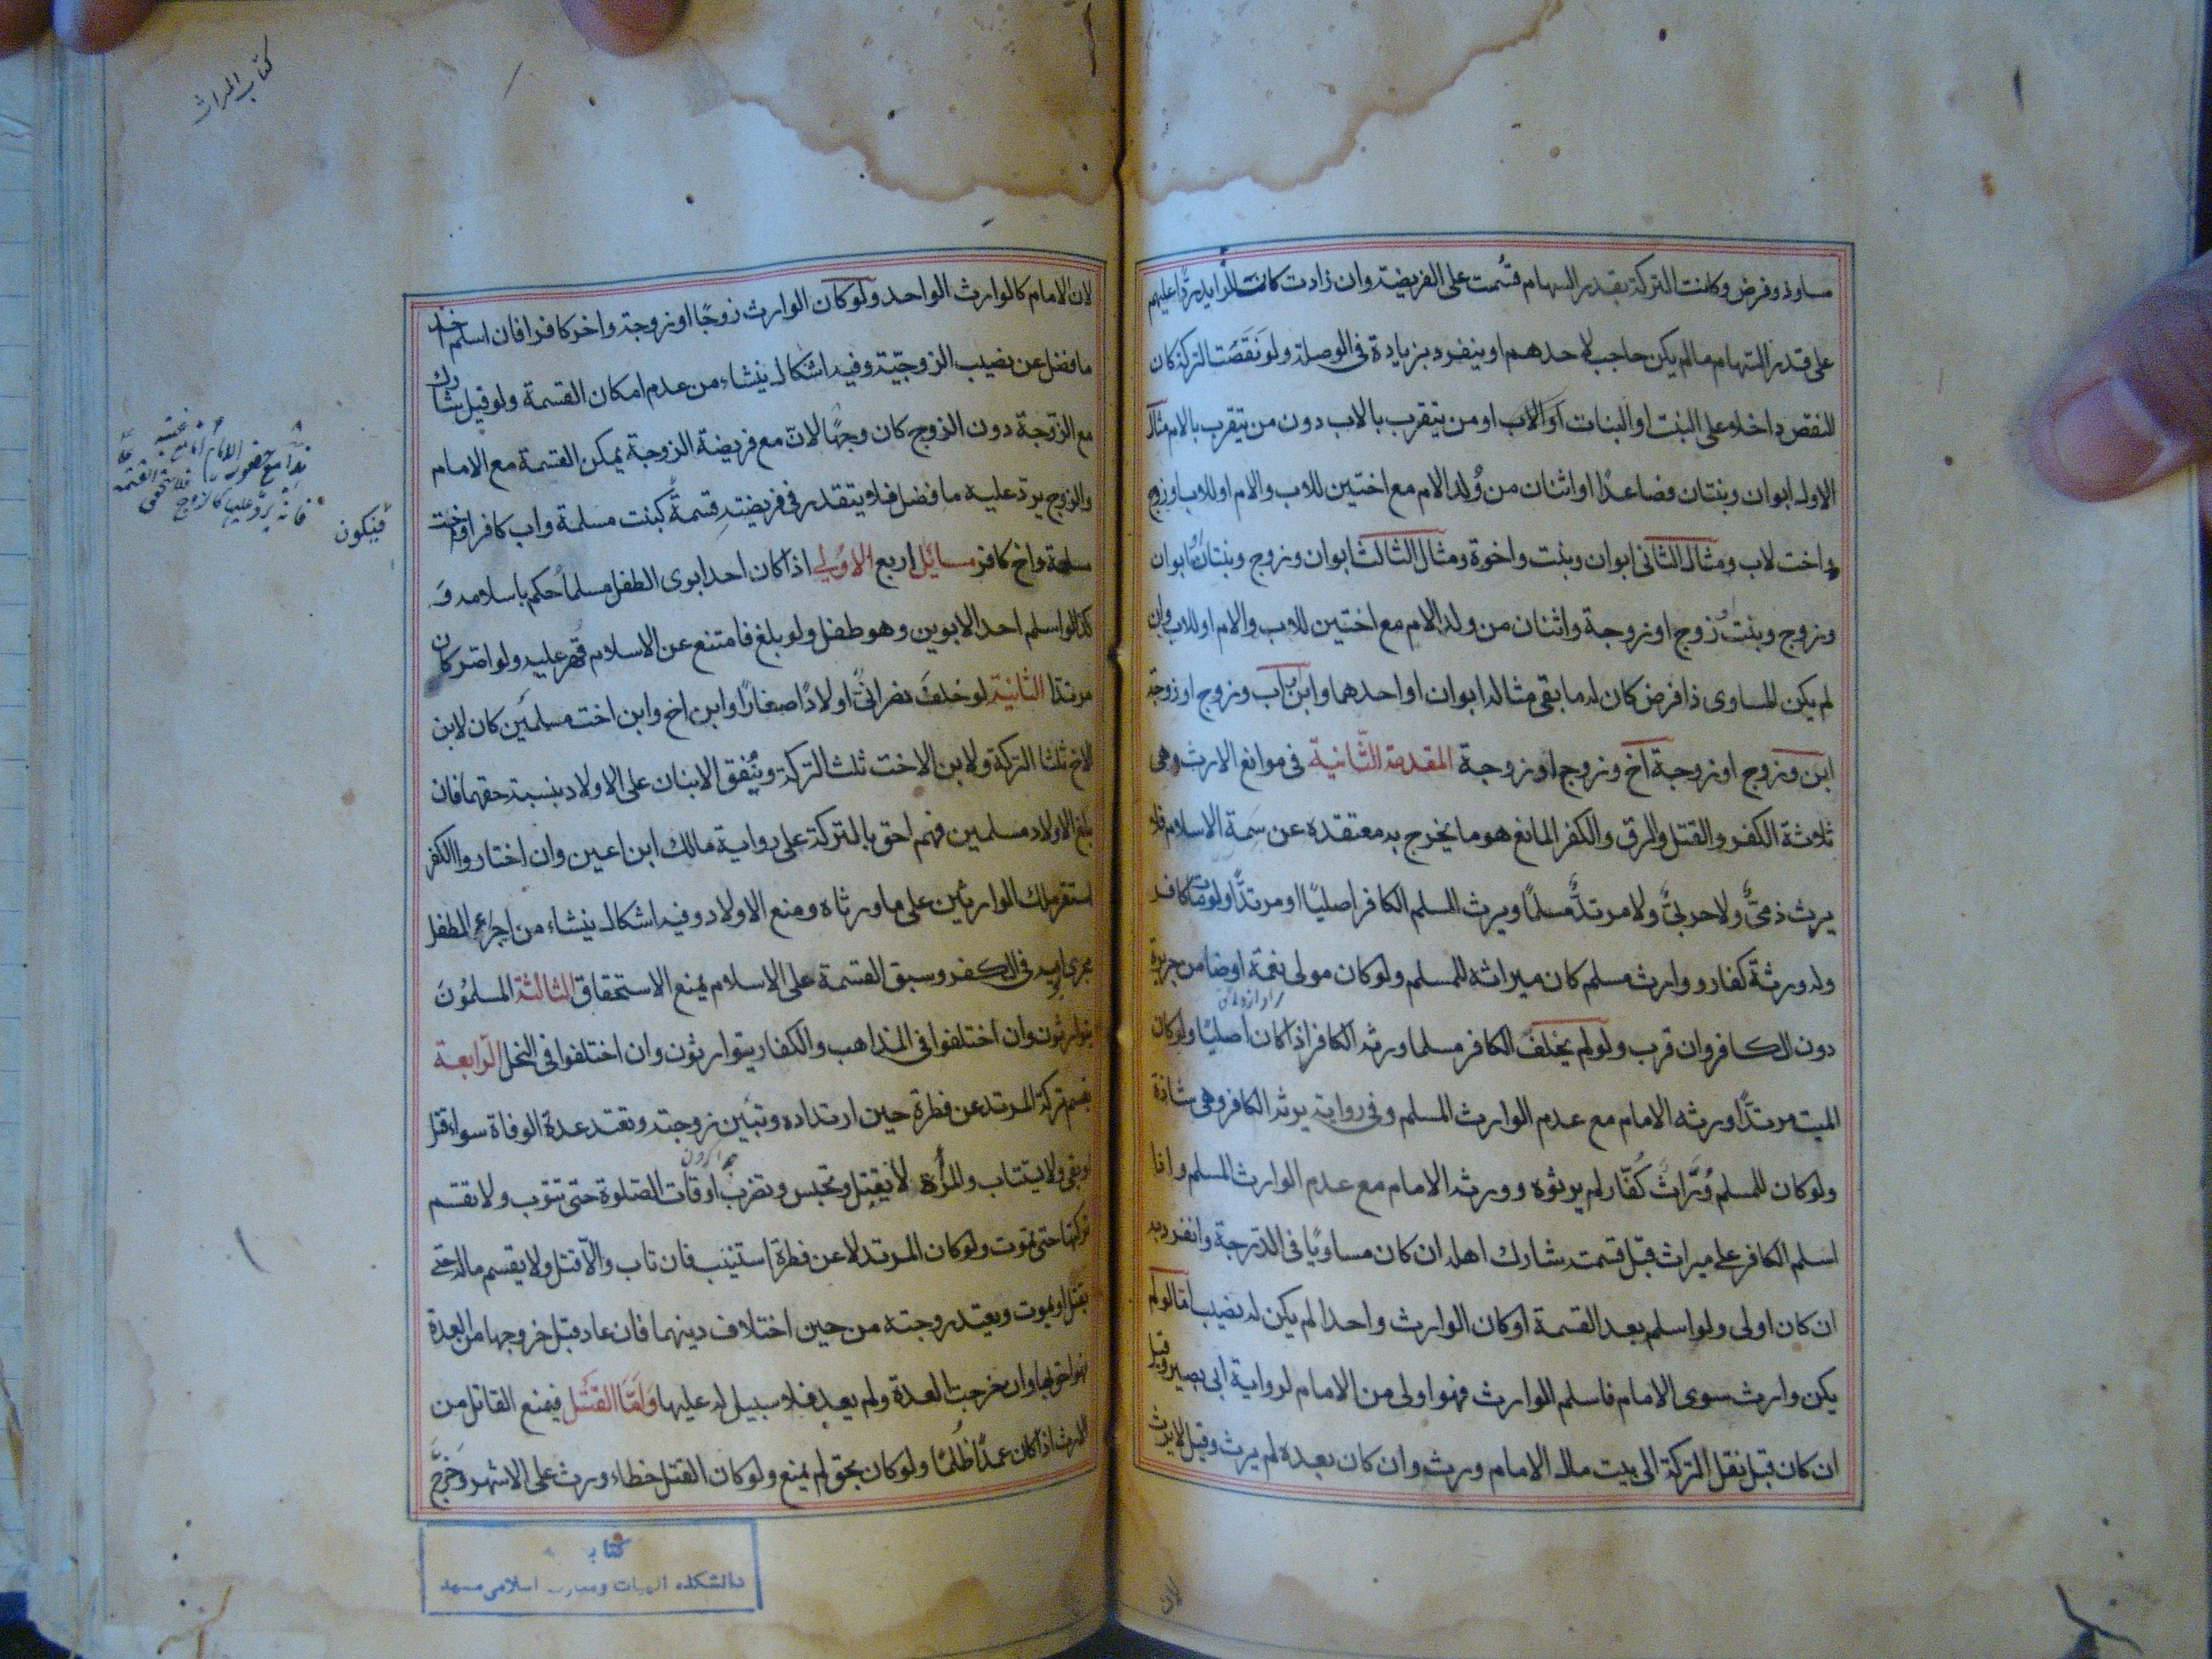 مساو ذو فرض وكانت التركة بقدر السهام قسمت على الفريضة وان زادت كانت الزايد ردا عليهم
على قدر السهام ما لم يكن حاجب لاحدهم او ينفرد بزيادة فى الوصلة ولو نقصت التركة كان
النقص داخلا على البنت او البنات او الاب او من يتقرب بالاب دون من يتقرب بالام مثال
الاول ابوان وبنتان فصاعدًا او اثنان من وُلد الام مع اختين للاب والام او للاب او زوج
واخت لاب ومثال الثانى ابوان وبنت واخوة ومثال الثالث ابوان وزوج وبنتان او ابوان
وزوج وبنت وزوج او زوجة واثنان من ولد الام مع اختين للاب والام او للاب وان
لم يكن المساوى ذا فرض كان له ما بقى مثاله ابوان او احدهما وابن اب وزوج او زوجة
ابن وزوج او زوجة اخ وزوج او زوجة المقدمة الثانية فى موانع الارث وهى
ثلاثة الكفر والقتل والرق والكفر المانع هو ما يخرج به معتقده عن سمة الاسلام فلا
يرث ذمىٌّ ولا حربىٌّ ولا مرتدٌّ مسلمًا ويرث المسلم الكافر اصليًا او مرتدًّا ولو مات كافر
وله ورثة كفار ووارث مسلم كان ميراثه للمسلم ولو كان مولى نعمة او ضامن جريرة
دون الكافر وان قرب ولو لم يخلف الكافر مسلما ورثه الكافر اذا كان اصليًا ولو كان
الميت مرتدًّا ورثه الامام مع عدم الوارث المسلم وفى رواية يرثه الكافر وهى شاذة
ولو كان للمسلم وُرَّاث كُفّار لم يرثوه وورثه الامام مع عدم الوارث المسلم واذا
اسلم الكافر على ميراث قبل قسمته شارك اهله ان كان مساويًا فى الدرجة وانفرد به
ان كان اولى ولو اسلم بعد القسمة او كان الوارث واحدا لم يكن له نصيب اما لو لم
يكن وارث سوى الامام فاسلم الوارث فهو اولى من الامام لرواية ابى بصير وقيل
ان كان قبل نقل التركة الى بيت مال الامام ورث وان كان بعده لم يرث وقيل لا يرث
لان
كتاب الميراث
لان الامام كالوارث الواحد ولو كان الوارث زوجًا او زوجة واخر كافرا فان اسلم اخذ
ما فضل عن نصيب الزوجيّة وفيه اشكال ينشاء من عدم امكان القسمة ولو قيل يشارك
مع الزوجة دون الزوج كان وجهًا لان مع فريضة الزوجة يمكن القسمة مع الامام
والزوج يرد عليه ما فضل فلا يتقدر فى فريضته قسمةٌ كبنت مسلمة واب كافر او اخت
مسلمة واخ كافر مسائل اربع الاولى اذا كان احد ابوى الطفل مسلماً حُكم باسلامه و
كذا لو اسلم احد الابوين وهو طفل ولو بلغ فامتنع عن الاسلام قُهر عليه ولو اصر كان
مرتدا الثانية لو خلف نصرانىٌّ اولادًا صغارًا وابن اخ وابن اخت مسلمين كان لابن
الاخ ثلثا التركة ولابن الاخت ثلث التركة ويُنفق الابنان على الاولاد بنسبة حقهما فان
بلغ الاولاد مسلمين فهم احق بالتركة على رواية مالك ابن اعين وان اختاروا الكفر
استقر ملك الوارثين على ما ورثاه ومنع الاولاد وفيه اشكال ينشاء من اجراء الطفل
مجرى ابيه فى الكفر وسبق القسمة على الاسلام يمنع الاستحقاق الثالثة المسلمُون
يتوارثون وان اختلفوا فى المذاهب والكفار يتوارثون وان اختلفوا فى النحل الرابعة
يقسم تركة المرتد عن فطرة حين ارتداده وتبين زوجته وتعتد عدة الوفاة سواء قتل
او بقى ولا يستتاب والمرأة لا تقتل وتحبس وتضرب اوقات الصلوة حتى تتوب ولا تقسم
تركتها حتى تموت ولو كان المرتد لا عن فطرة استتيب فان تاب والّا قتل ولا يقسم ماله حتى
يقتل او يموت وتعتد زوجته من حين اختلاف دينهما فان عاد قبل خروجها من العدة
فهو احق بها وان خرجت العدة ولم يعد فلا سبيل له عليها وامّا القتل فيمنع القاتل من
الارث اذا كان عمدًا ظلمًا ولو كان بحق لم يمنع ولو كان القتل خطاء ورث على الاشهر وخرّج
فيكون
كتاب
دانشكده الهيات ومعارف اسلامى مشهد